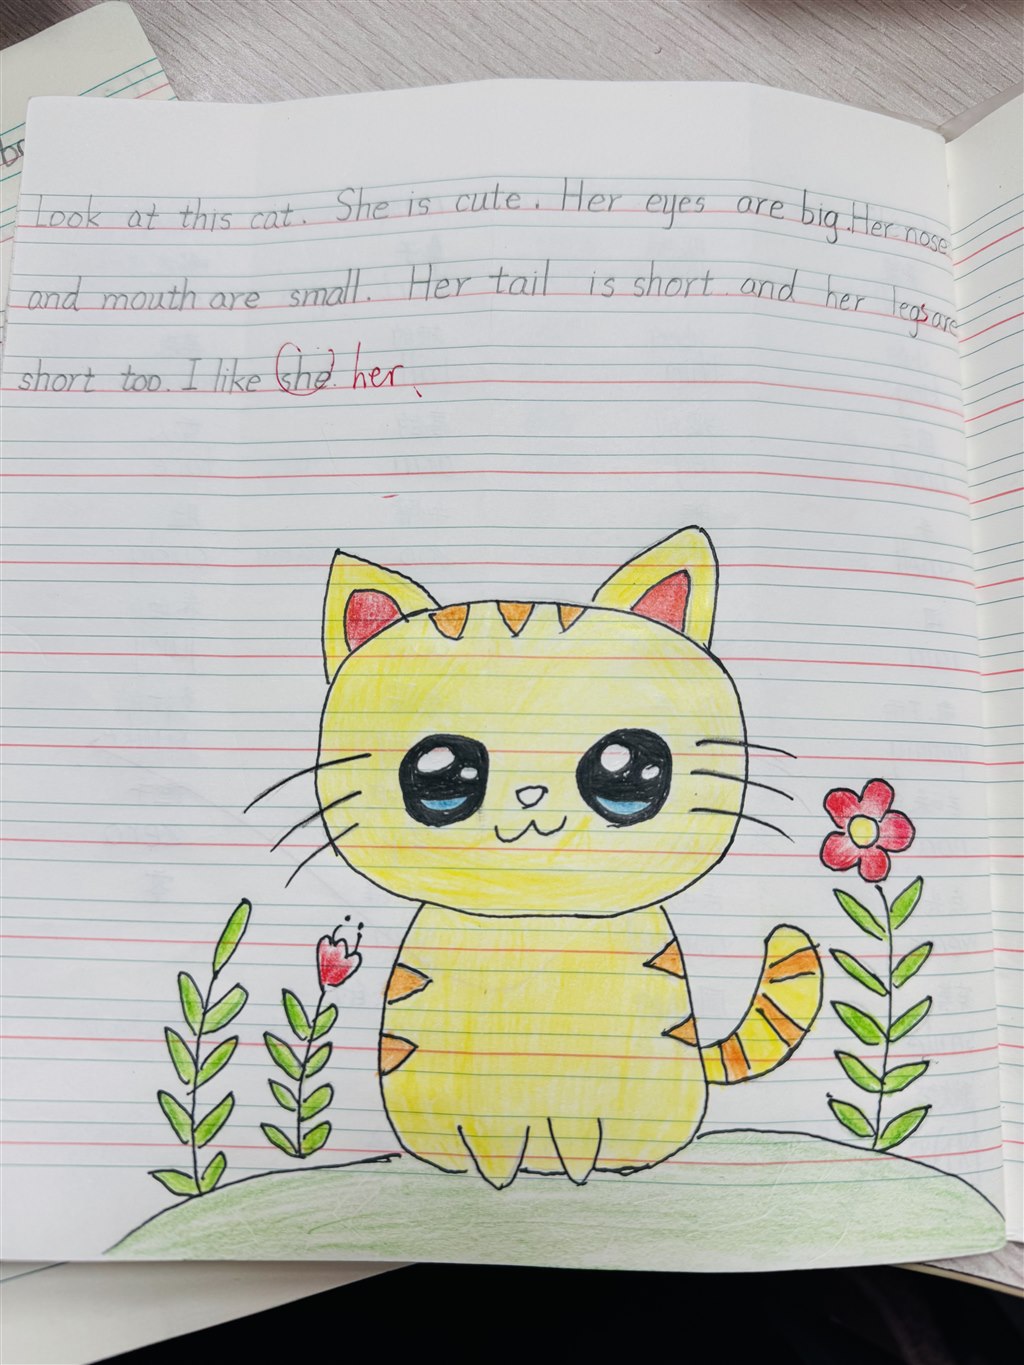 Look at this cat. She is cute. Her eyes are big. Her nose
and mouth are small. Her tail is short and her legs are
short too. I like she. her.
br